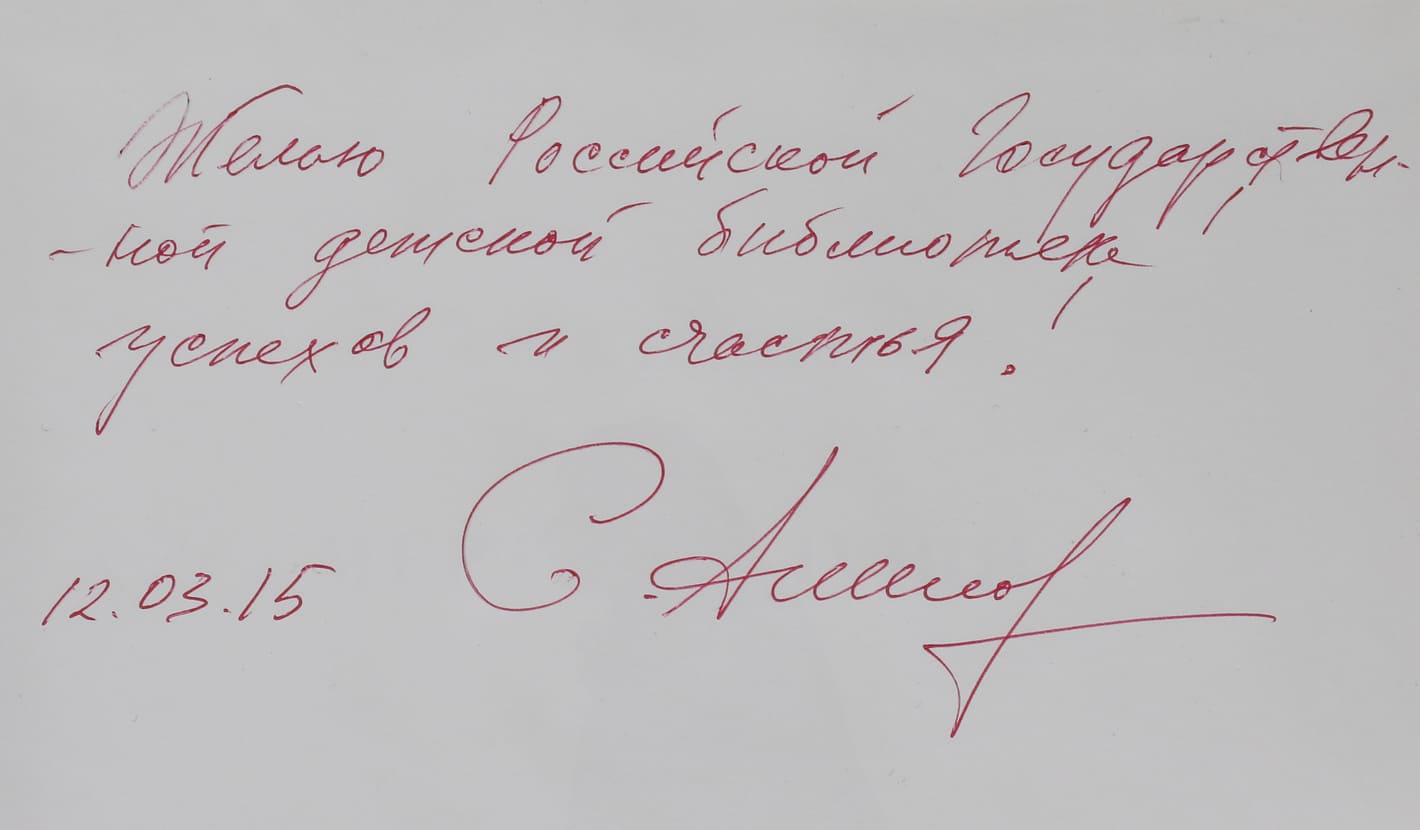 Желаю Российской Государствен-
-ной детской библиотеке
успехов и счастья!
12.03.15 С.